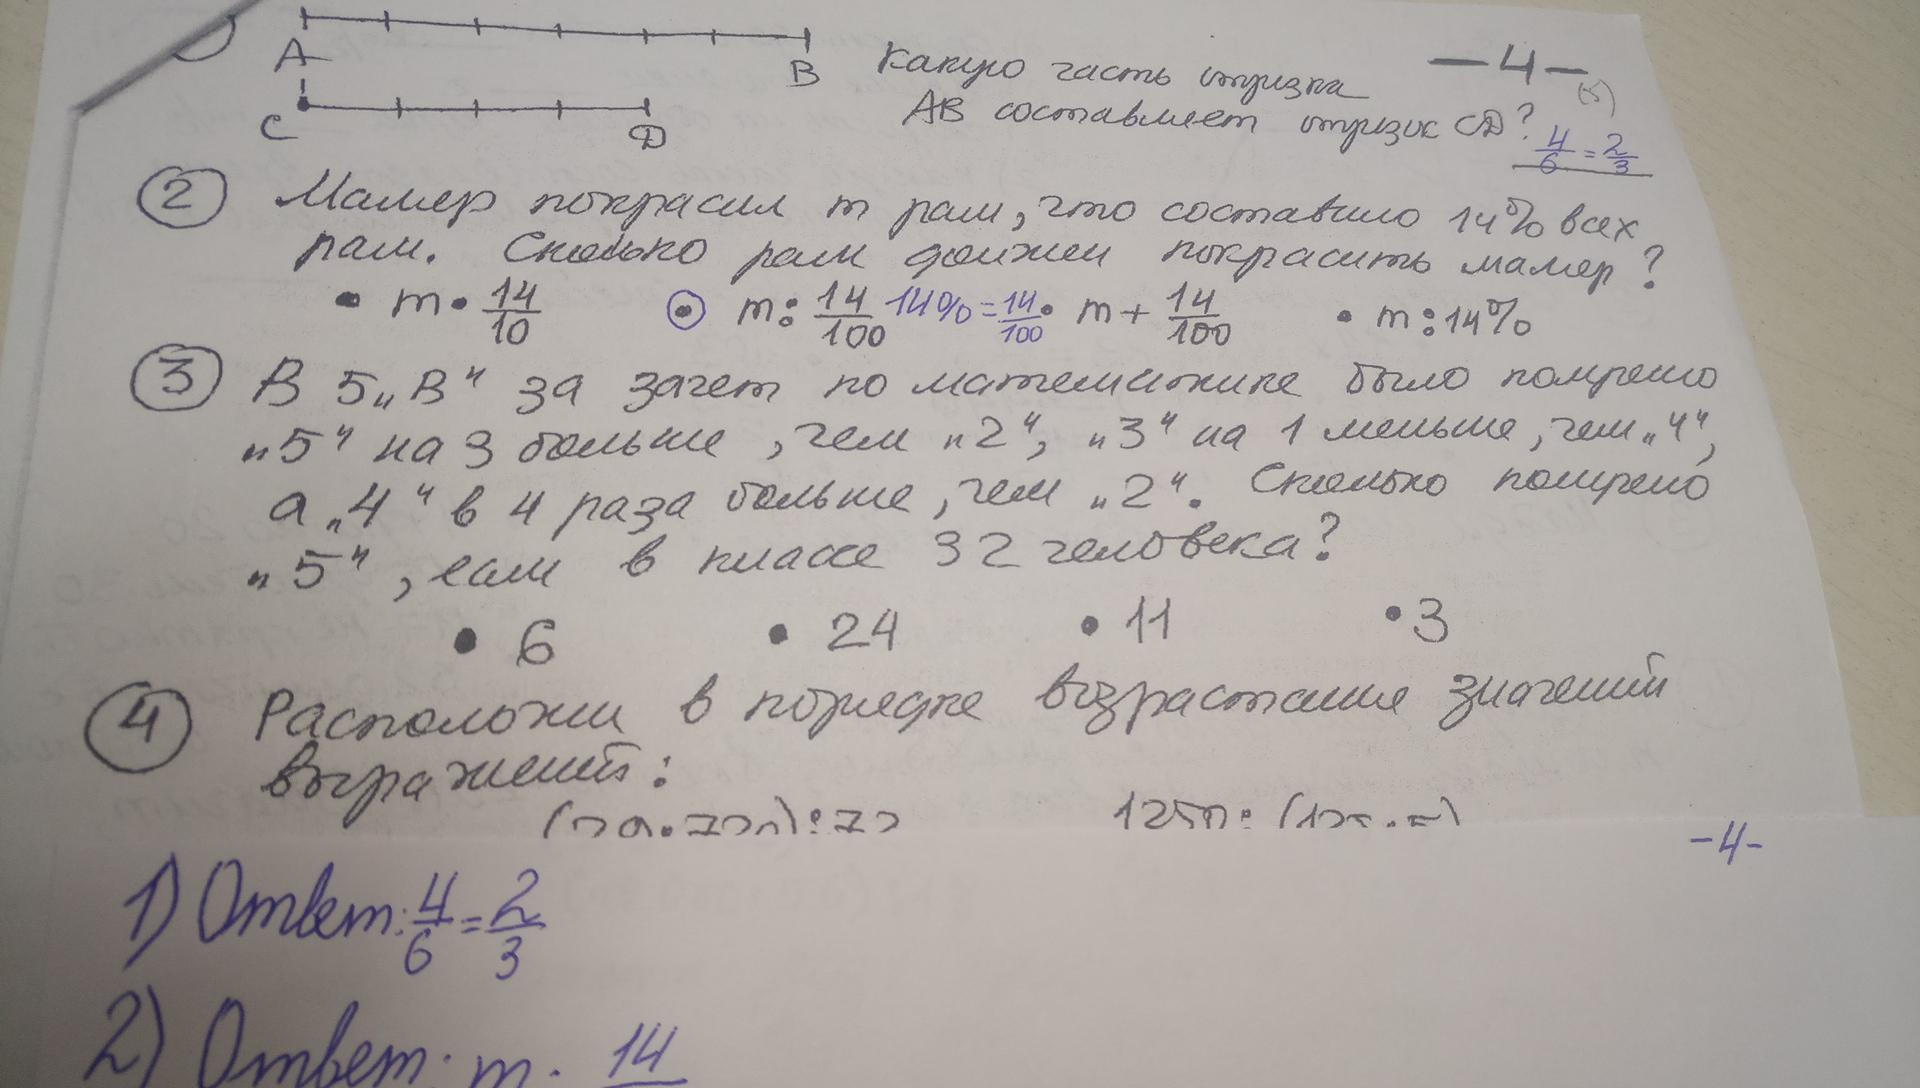 A
B
C
D
Какую часть отрезка
AB составляет отрезок CD?
-4-
(5)
4/6 = 2/3
② Маляр покрасил m рам, что составило 14% всех
рам. Сколько рам должен покрасить маляр?
• m · 14/10 • m : 14/100 14% = 14/100 • m + 14/100 • m : 14%
③ В 5 „В“ за зачет по математике было получено
„5“ на 3 больше, чем „2“, „3“ на 1 меньше, чем „4“,
а „4“ в 4 раза больше, чем „2“. Сколько получено
„5“, если в классе 32 человека?
• 6 • 24 • 11 • 3
④ Расположи в порядке возрастания значений
выражений:
-4-
1) Ответ: 4/6 = 2/3
2) Ответ: m · 14